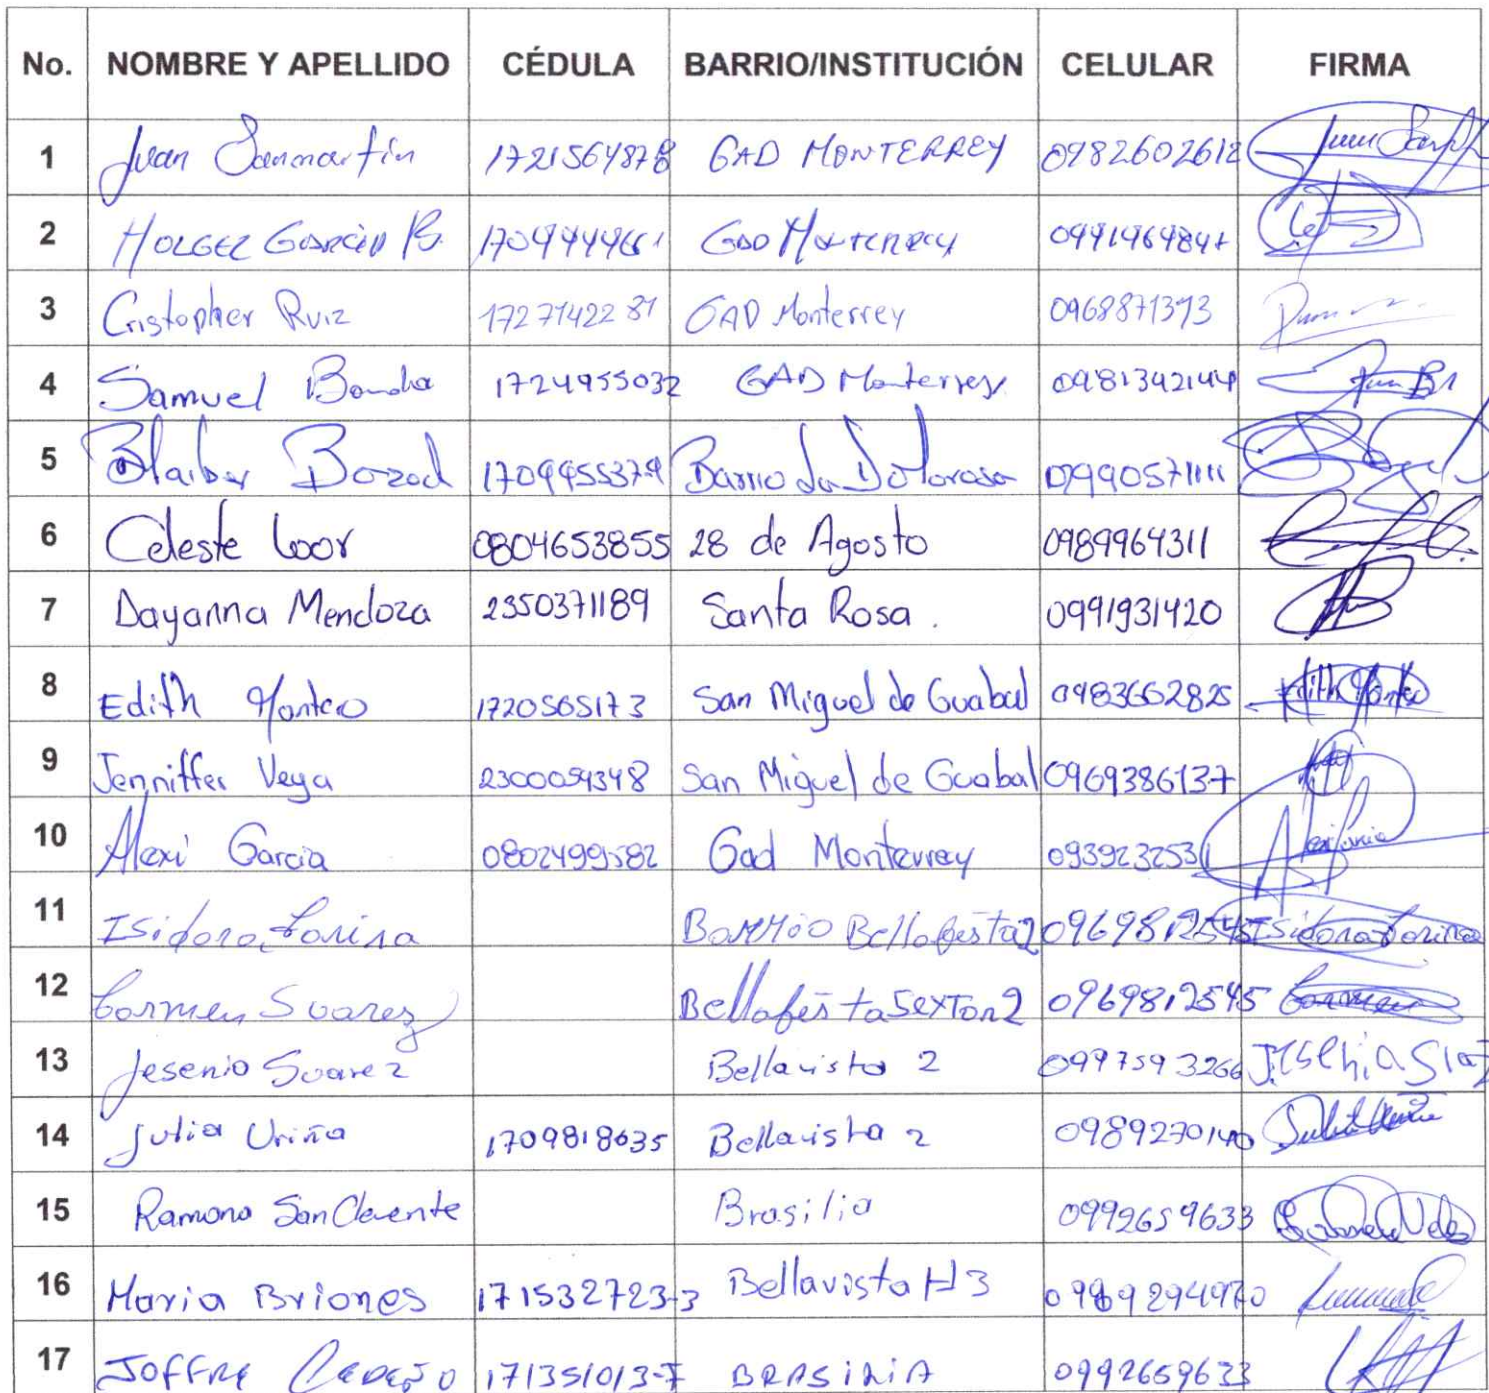 No. NOMBRE Y APELLIDO CÉDULA BARRIO/INSTITUCIÓN CELULAR FIRMA
1 Juan Sanmartin 1721564878 GAD MONTERREY 0982602612
2 HOLGER GARCIA B. 1709444661 GAD Monterrey 0991964847
3 Cristopher Ruiz 1727142281 GAD Monterrey 0968871393
4 Samuel 1724955032 GAD Monterrey 0981342144
5 1709955379 Barrio La Dolorosa 0990571111
6 Celeste Loor 0804653855 28 de Agosto 0989964311
7 Dayanna Mendoza 2350371189 Santa Rosa. 0991931420
8 Edith Montero 1720565173 San Miguel de Guabal 0983662825 Edith Montero
9 Jenniffer Vega 2300054348 San Miguel de Guabal 0969386137
10 Alexi Garcia 0802499582 Gad Monterrey 093923253
11 Isidora Barrio 0969812545 Isidora
12 Carmen Suarez 0969812545 Carmen
13 Jesenia Suarez Bellavista 2 0997593266
14 Julia Uriña 1709818635 Bellavista 2 0989270140
15 Ramona San Clemente Brasilia 0992659633
16 Maria Briones 171532723-3 Bellavista #3
17 JOFFRE CEDEÑO 171351013-7 BRASILIA 0992659633